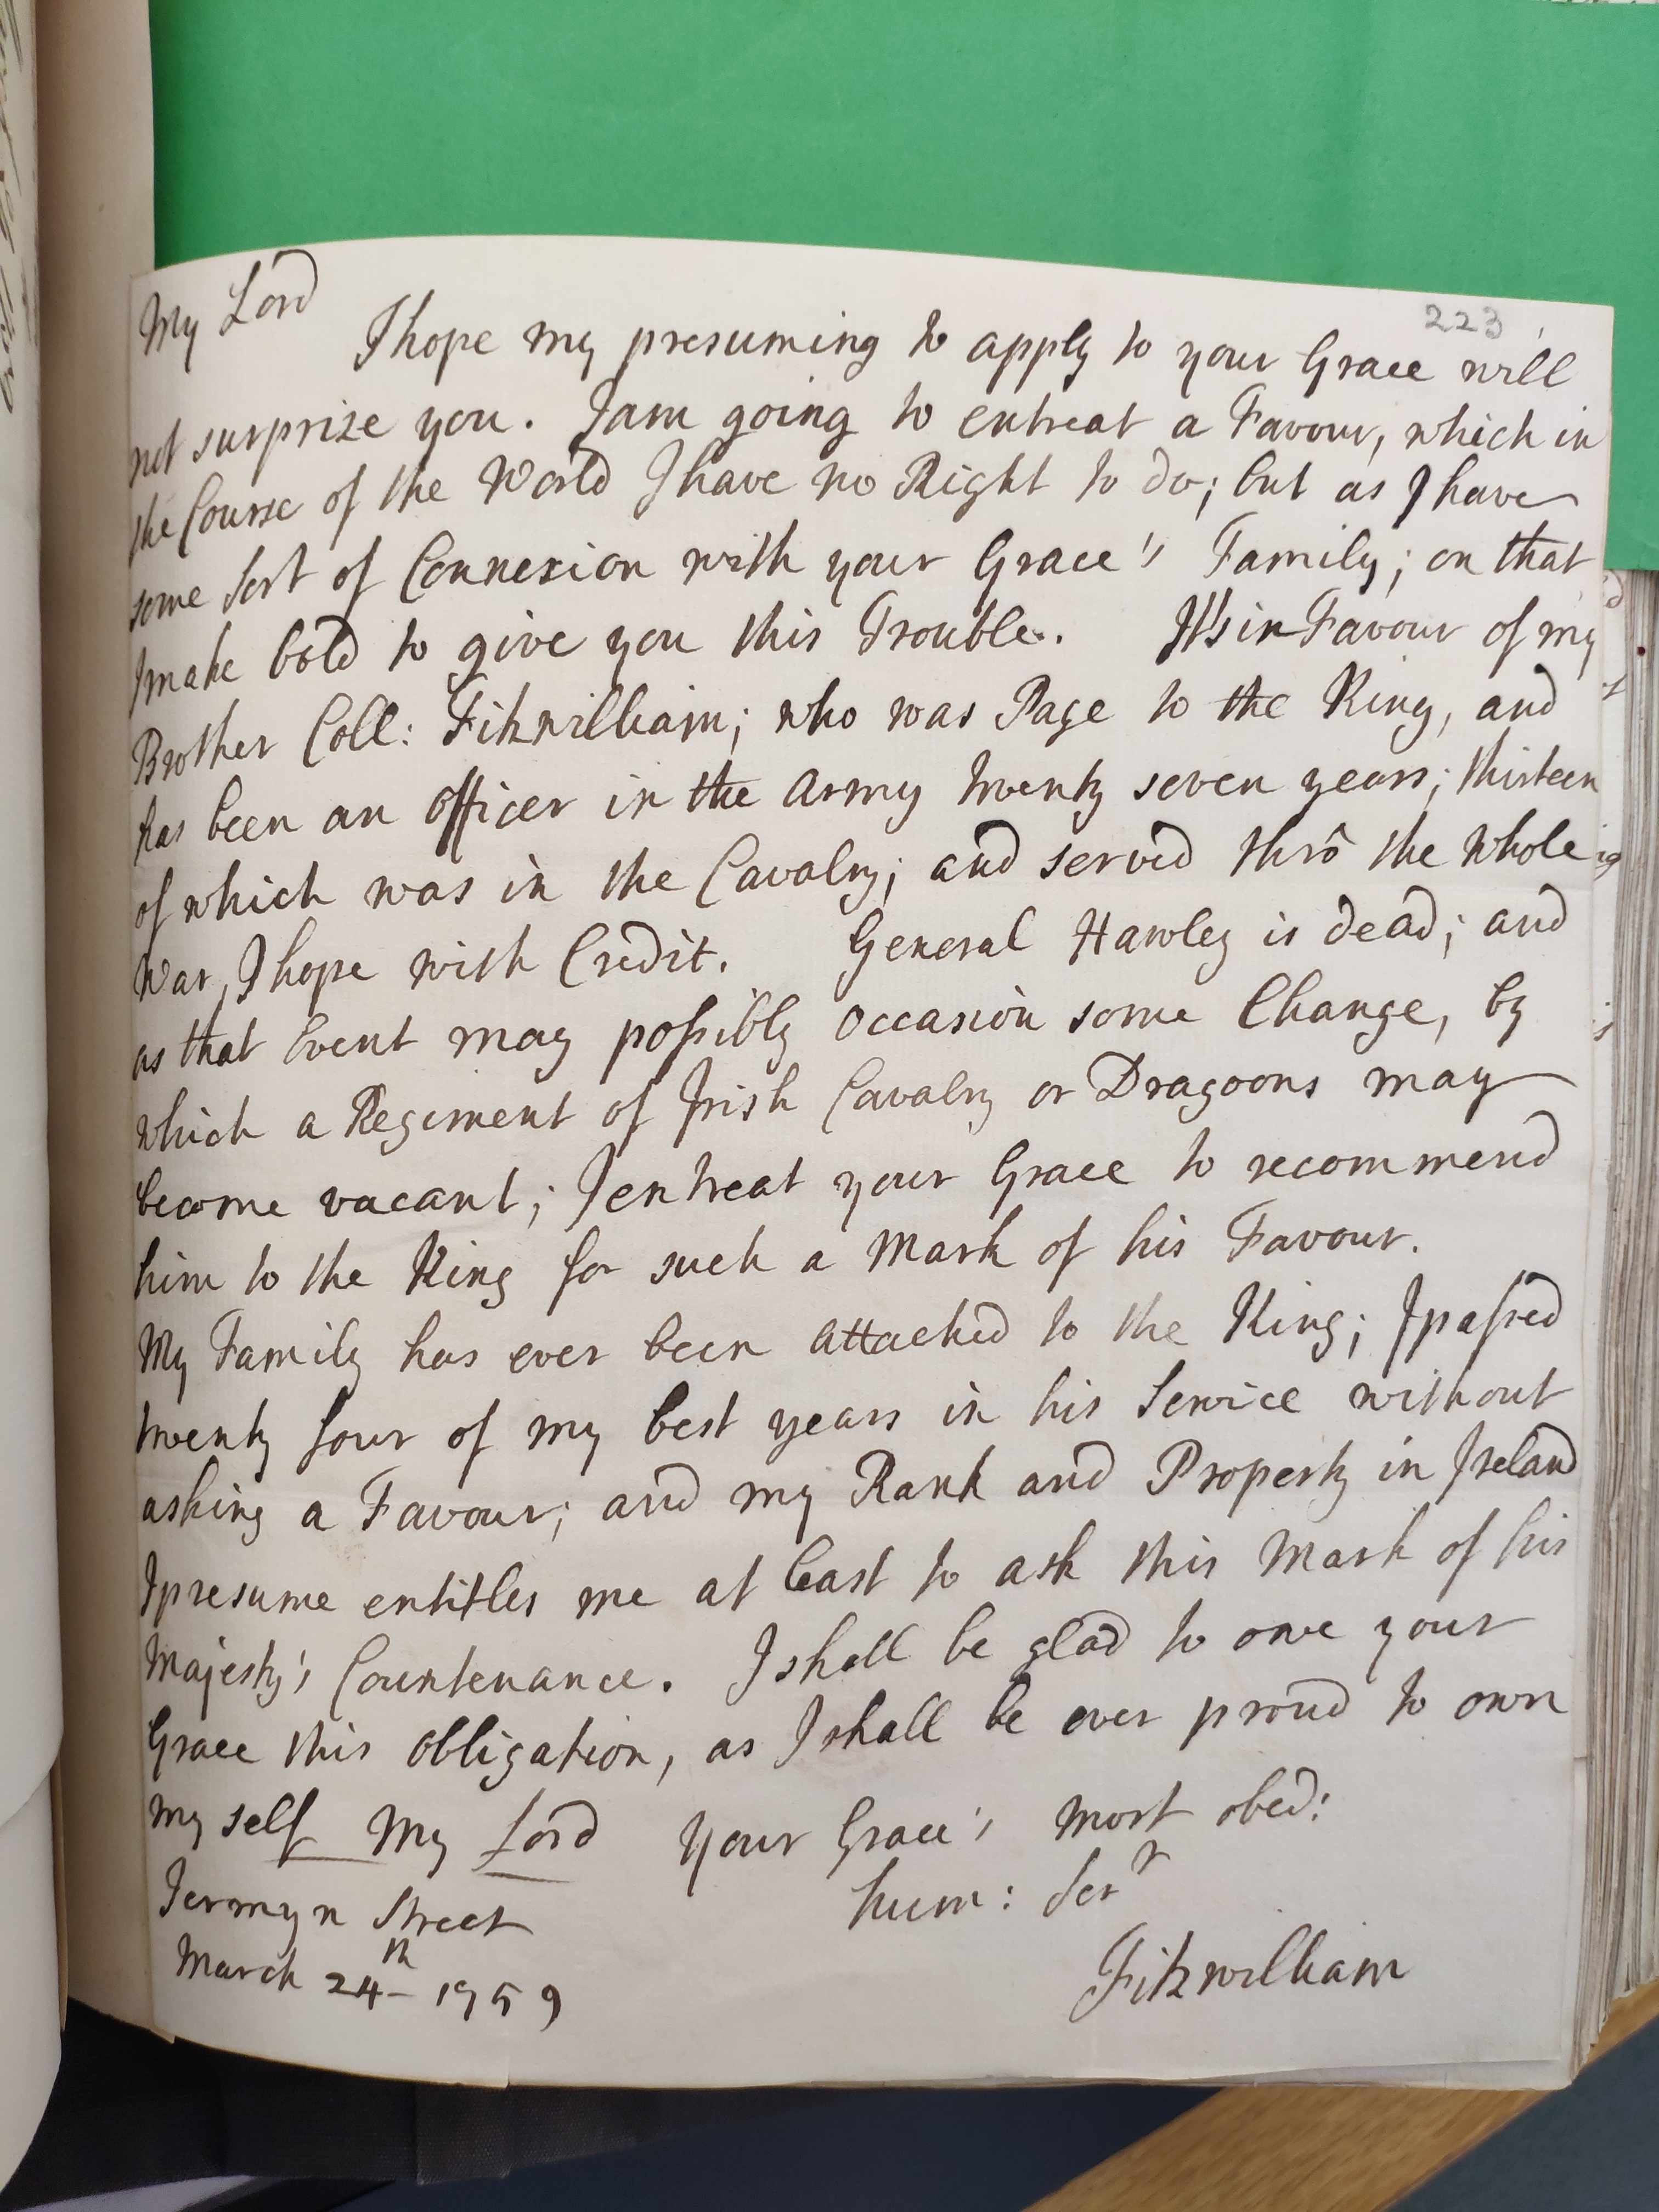 223
My Lord
I hope my presuming to apply to your Grace will
not surprize you. I am going to entreat a Favour, which in
the Course of the World I have no Right to do; but as I have
some sort of Connexion with your Grace's Family; on that
I make bold to give you this Trouble. It's in Favour of my
Brother Coll: Fitzwilliam; who was Page to the King, and
has been an officer in the Army twenty seven years; thirteen
of which was in the Cavalry; and served thrô the whole
War, I hope with Credit. General Hawley is dead; and
as that Event may possibly occasion some Change, by
which a Regiment of Irish Cavalry or Dragoons may
become vacant; I entreat your Grace to recommend
him to the King for such a Mark of his Favour.
My Family has ever been attached to the King; I passed
twenty four of my best years in his Service without
asking a Favour; and my Rank and Property in Ireland
I presume entitles me at least to ask this Mark of his
Majesty's Countenance. I shall be glad to owe your
Grace this obligation, as I shall be ever proud to own
my self My Lord Your Grace's most obed:
hum: Ser<sup>r</sup>
Jermyn Street
March 24th 1759
Fitzwilliam